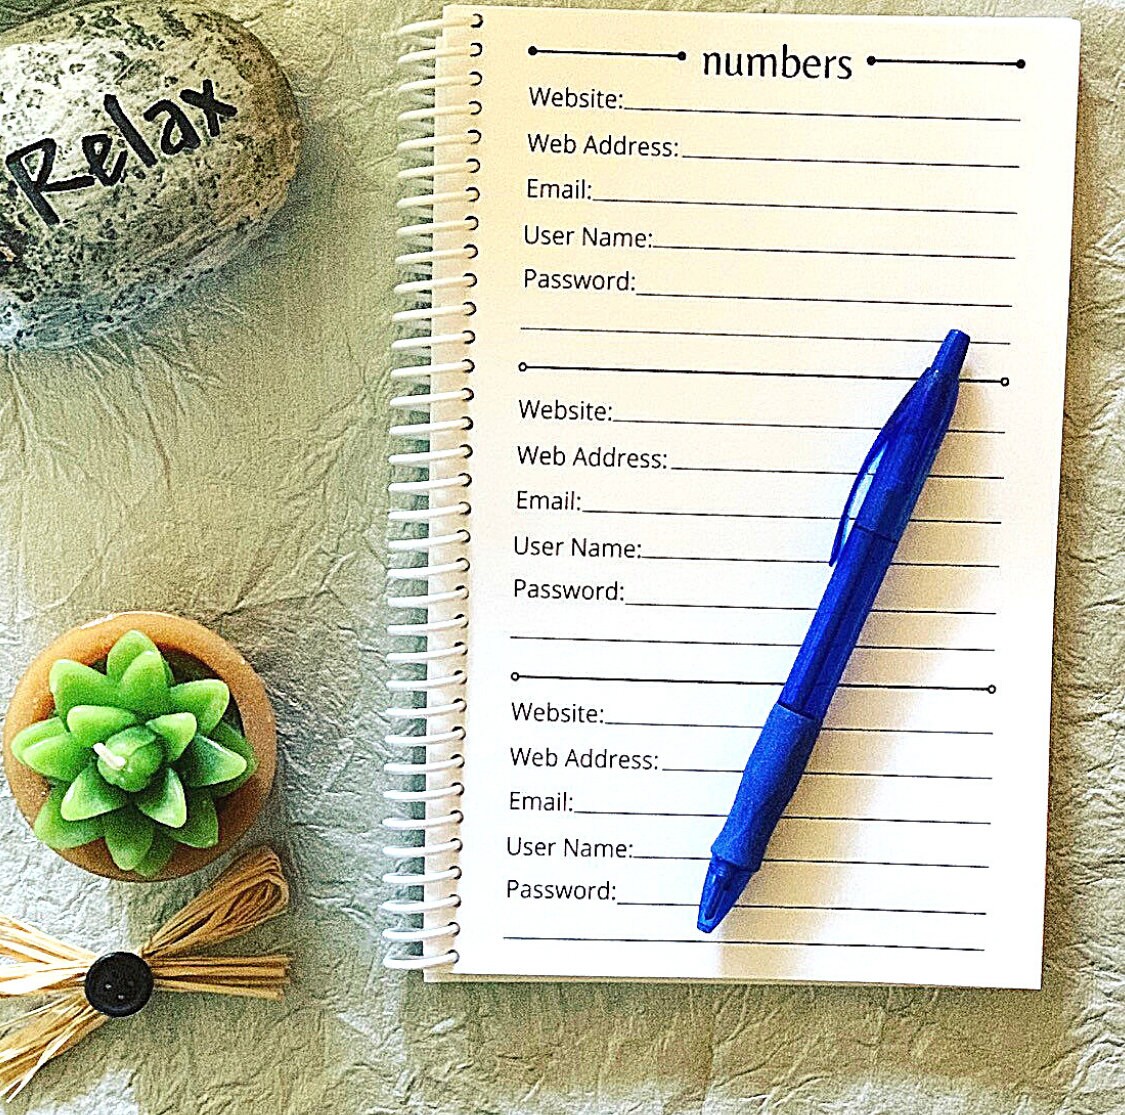 Relax
numbers
Website:
Web Address:
Email:
User Name:
Password:
Website:
Web Address:
Email:
User Name:
Password:
Website:
Web Address:
Email:
User Name:
Password: